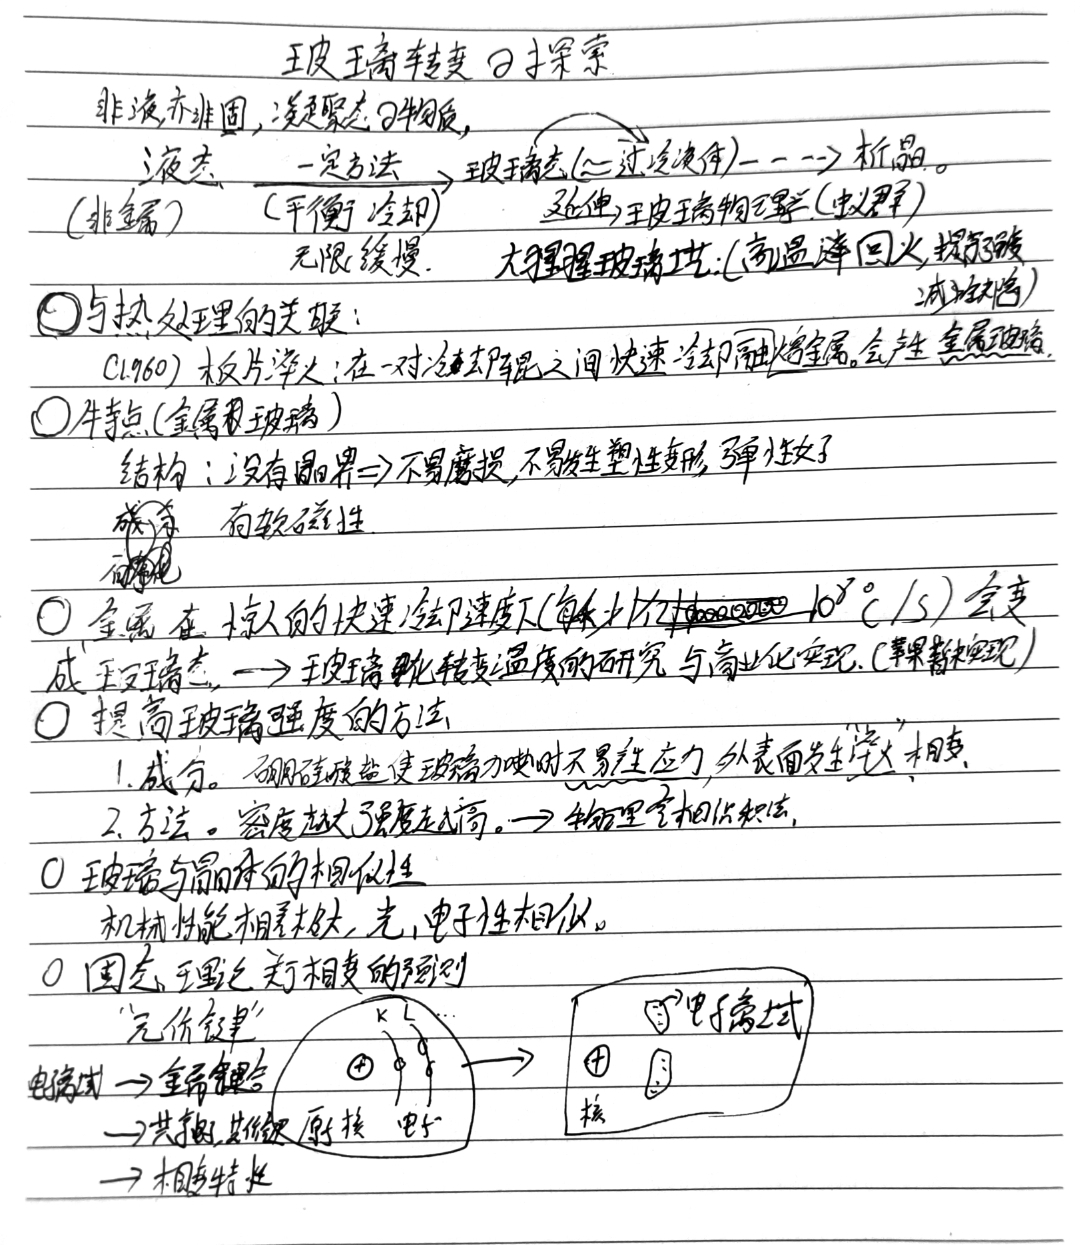 玻璃转变の探索
非液亦非固，凝聚态の物质，
液态 一定方法 玻璃态(≈过冷液体)----→析晶。
(非金属) (平衡冷却) 延伸→玻璃物理学(蚁群)
无限缓慢. 大猩猩玻璃工艺:(高温淬回火,提高强度
减少缺陷)
○与热处理的关联:
(1960) 板片淬火:在一对冷却辊之间快速冷却融熔金属。会产生金属玻璃.
○特点(金属玻璃)
结构:没有晶界⇒不易磨损,不易发生塑性变形,弹性好
成分 有软磁性
○ 金属在惊人的快速冷却速度下( 10⁸℃/s)会变
成玻璃态,—→玻璃化转变温度的研究与商业化实现.(苹果暂未实现)
○ 提高玻璃强度的方法
1.成分。硼硅酸盐使玻璃力学时不易产生应力,外表面发生"淬火"相变
2.方法。密度越大强度越高。→物理气相沉积法,
○ 玻璃与晶体的相似性
机械性能相差极大,光,电子性相似。
○ 固态理论关于相变的预测
"元价键"
K L ...
电子离域
电子离域 → 金属键合
→共享电子,共价键
原子核 电子
核
→相变特性